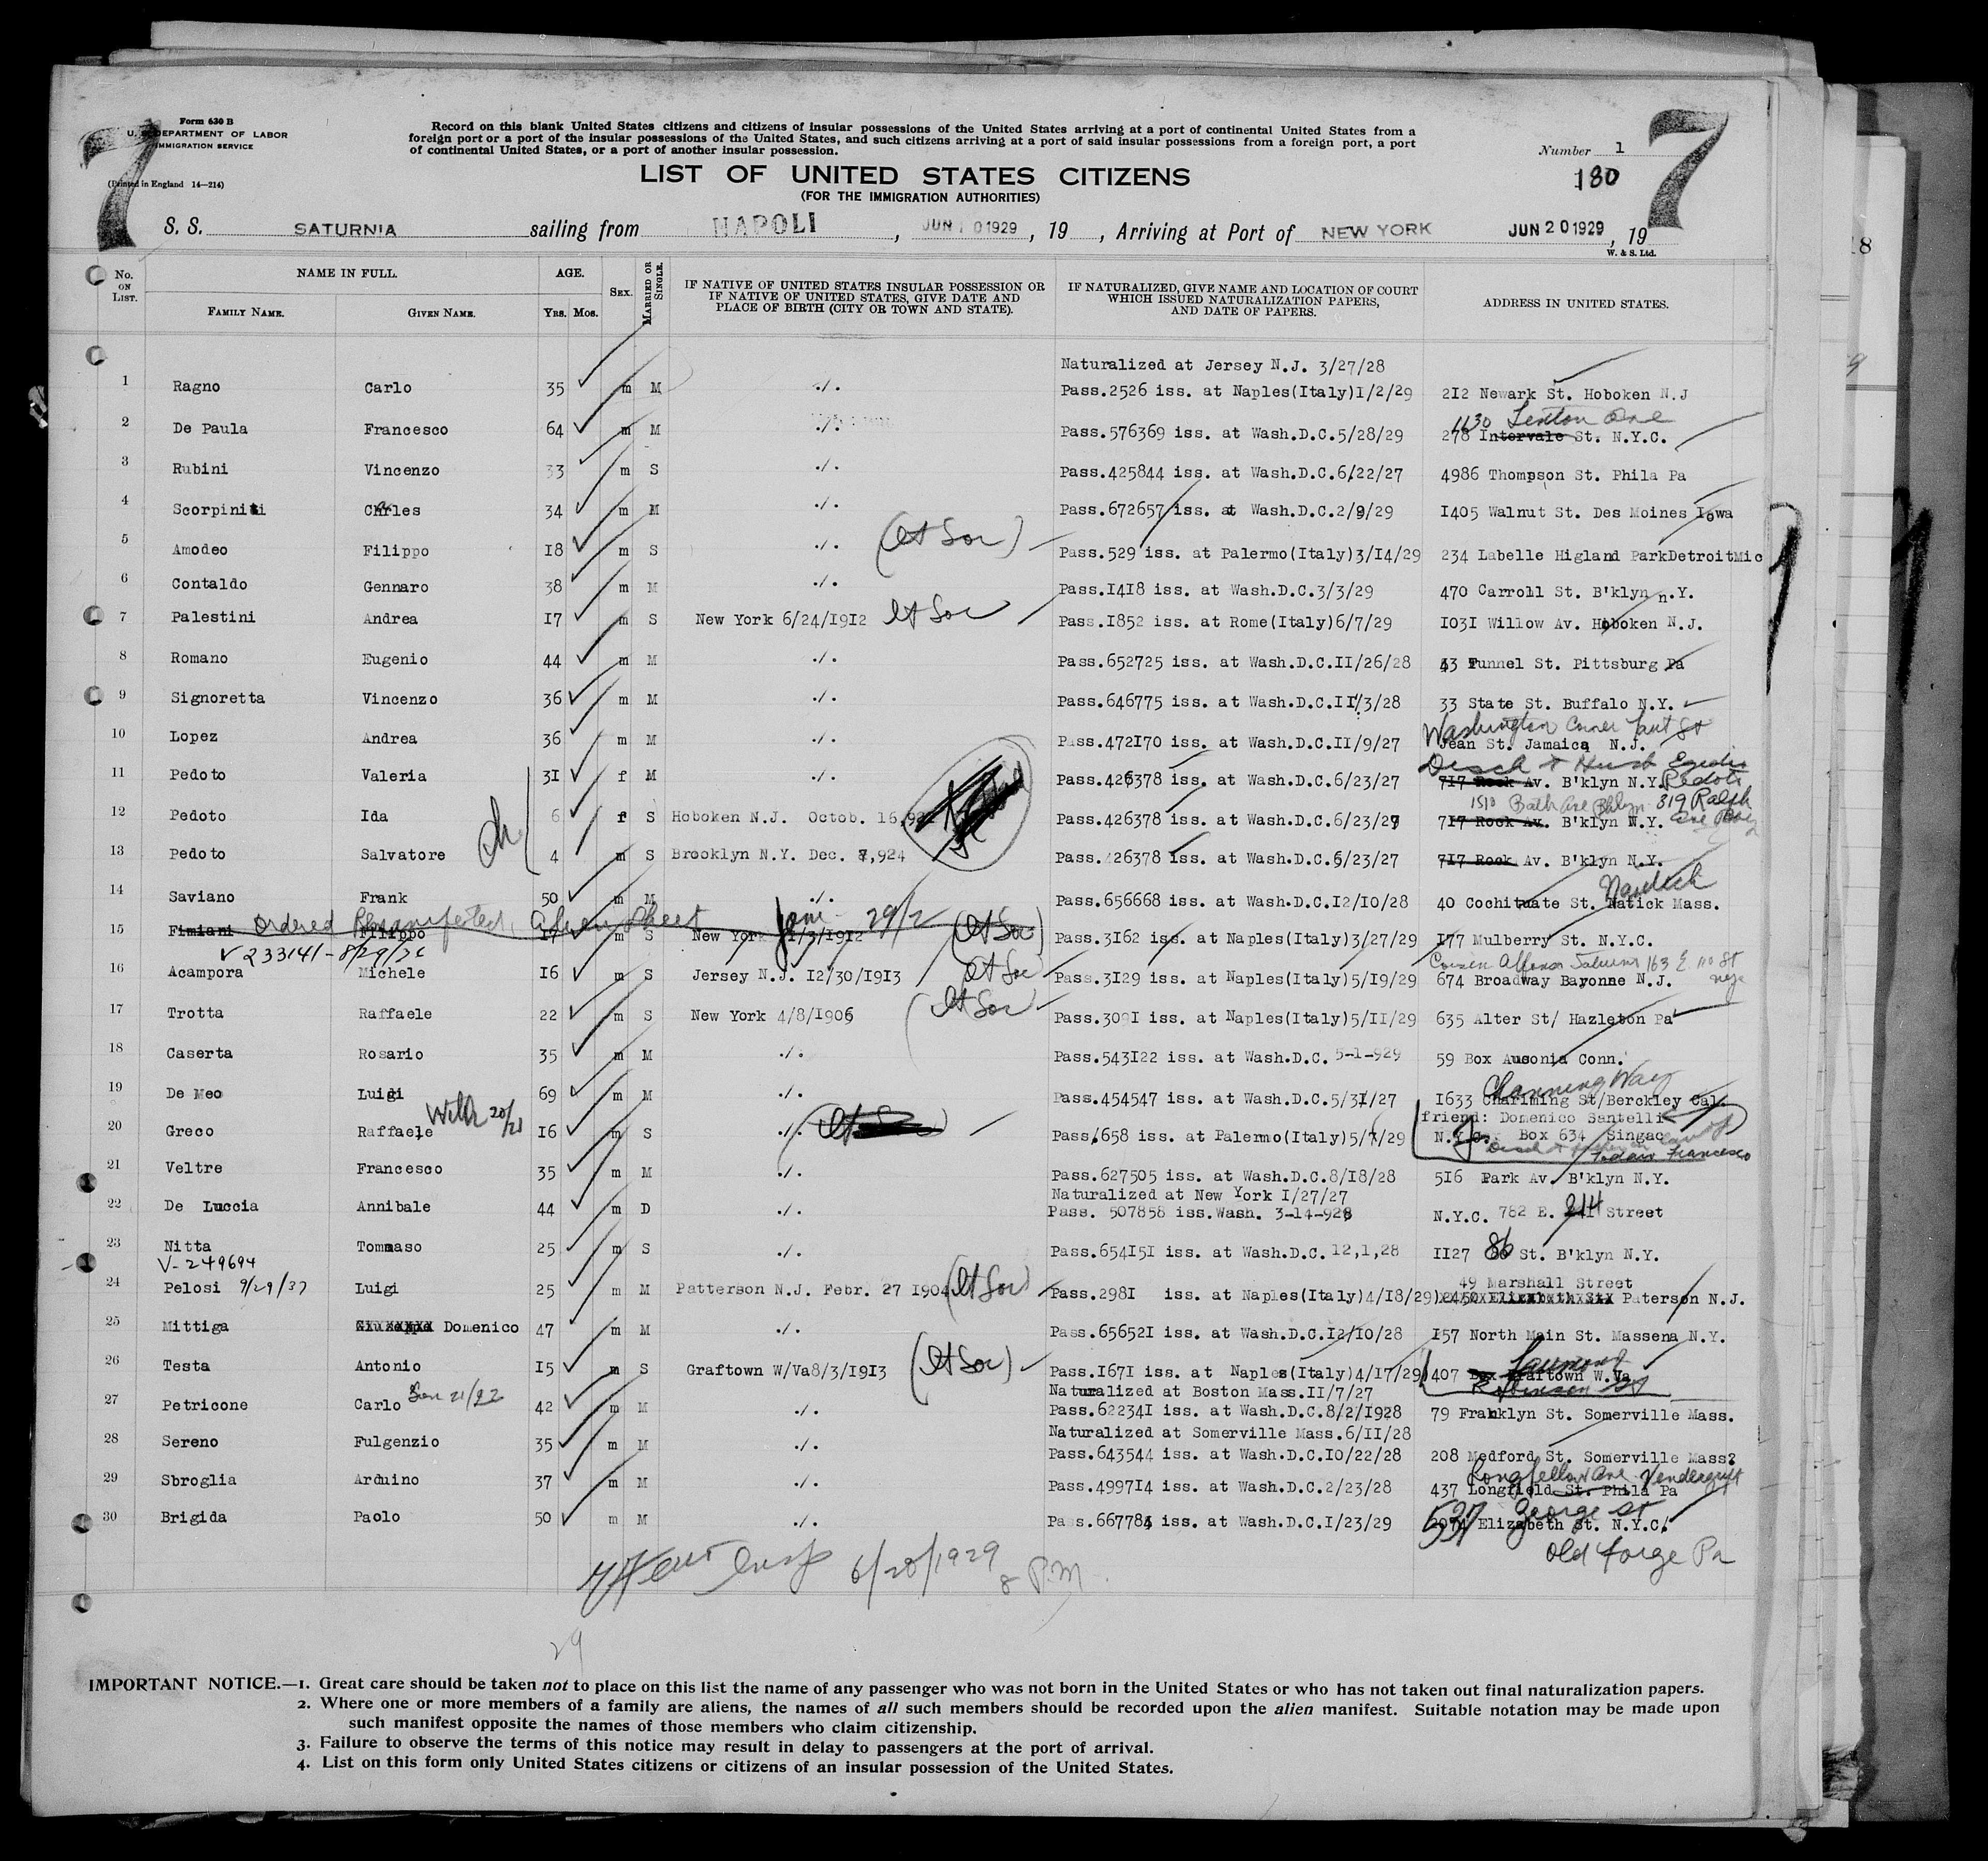 7
7
Form 630 B
U. S. DEPARTMENT OF LABOR
IMMIGRATION SERVICE
(Printed in England 14—214)
Record on this blank United States citizens and citizens of insular possessions of the United States arriving at a port of continental United States from a
foreign port or a port of the insular possessions of the United States, and such citizens arriving at a port of said insular possessions from a foreign port, a port
of continental United States, or a port of another insular possession.
Number 1
180
LIST OF UNITED STATES CITIZENS
(FOR THE IMMIGRATION AUTHORITIES)
S. S. SATURNIA sailing from NAPOLI, JUN 10 1929, 19 , Arriving at Port of NEW YORK JUN 20 1929, 19
W. & S. Ltd.
No. ON LIST. NAME IN FULL. FAMILY NAME. GIVEN NAME. AGE. YRS. MOS. SEX. MARRIED OR SINGLE. IF NATIVE OF UNITED STATES INSULAR POSSESSION OR IF NATIVE OF UNITED STATES, GIVE DATE AND PLACE OF BIRTH (CITY OR TOWN AND STATE). IF NATURALIZED, GIVE NAME AND LOCATION OF COURT WHICH ISSUED NATURALIZATION PAPERS, AND DATE OF PAPERS. ADDRESS IN UNITED STATES.
Naturalized at Jersey N.J. 3/27/28
1 Ragno Carlo 35 m M ./. Pass.2526 iss. at Naples(Italy)1/2/29 212 Newark St. Hoboken N.J
1130
2 De Paula Francesco 64 m M ./. Pass.576369 iss. at Wash.D.C.5/28/29 278 Intervale St. N.Y.C.
3 Rubini Vincenzo 33 m S ./. Pass.425844 iss. at Wash.D.C.6/22/27 4986 Thompson St. Phila Pa
4 Scorpiniti Chrles 34 m M ./. Pass.672657 iss. at Wash.D.C.2/9/29 1405 Walnut St. Des Moines Iowa
5 Amodeo Filippo 18 m S ./. Pass.529 iss. at Palermo(Italy)3/14/29 234 Labelle Higland ParkDetroitMic
6 Contaldo Gennaro 38 m M ./. Pass.1418 iss. at Wash.D.C.3/3/29 470 Carroll St. B'klyn n.Y.
7 Palestini Andrea 17 m S New York 6/24/1912 Pass.1852 iss. at Rome(Italy)6/7/29 1031 Willow Av. Hoboken N.J.
8 Romano Eugenio 44 m M ./. Pass.652725 iss. at Wash.D.C.II/26/28 43 Tunnel St. Pittsburg Pa
9 Signoretta Vincenzo 36 m M ./. Pass.646775 iss. at Wash.D.C.II/3/28 33 State St. Buffalo N.Y.
Washington Corner
10 Lopez Andrea 36 m M ./. Pass.472170 iss. at Wash.D.C.II/9/27 Jean St. Jamaica N.J.
Disch to Husb Egidio
11 Pedoto Valeria 31 f M ./. Pass.426378 iss. at Wash.D.C.6/23/27 717 Rock Av. B'klyn N.Y. Pedoto
1510 Bath Ave Bklyn 819 Ralph
12 Pedoto Ida 6 f S Hoboken N.J. Octob. 16,92 Pass.426378 iss. at Wash.D.C.6/23/27 717 Rock Av. B'klyn N.Y.
13 Pedoto Salvatore 4 m S Brooklyn N.Y. Dec. 8,924 Pass.426378 iss. at Wash.D.C.6/23/27 717 Rock Av. B'klyn N.Y.
14 Saviano Frank 50 m M ./. Pass.656668 iss. at Wash.D.C.12/10/28 40 Cochituate St. Natick Mass.
Ordered Remanifested, Alien Sheet June 29/2
15 Fimiani Filippo 17 m S New York 1/3/1912 Pass.3162 iss. at Naples(Italy)3/27/29 177 Mulberry St. N.Y.C.
V 233141 - 8/29/36
16 Acampora Michele 16 m S Jersey N.J. 12/30/1913 Pass.3129 iss. at Naples(Italy)5/19/29 674 Broadway Bayonne N.J.
17 Trotta Raffaele 22 m S New York 4/8/1906 Pass.3091 iss. at Naples(Italy)5/11/29 635 Alter St/ Hazleton Pa
18 Caserta Rosario 35 m M ./. Pass.543122 iss. at Wash.D.C. 5-1-929 59 Box Ausonia Conn.
Channing Way
19 De Meo Luigi 69 m M ./. Pass.454547 iss. at Wash.D.C.5/31/27 1633 Chariming St/Berckley Cal.
friend: Domenico Santelli
20 Greco Raffaele 16 m S ./. Pass.658 iss. at Palermo(Italy)5/7/29 N.Y.C. Box 634 Singac
21 Veltre Francesco 35 m M ./. Pass.627505 iss. at Wash.D.C.8/18/28 516 Park Av. B'klyn N.Y.
Naturalized at New York 1/27/27
22 De Luccia Annibale 44 m D ./. Pass. 507858 iss.Wash. 3-14-928 N.Y.C. 782 E. 214 Street
23 Nitta Tommaso 25 m S ./. Pass.654151 iss. at Wash.D.C. 12,1,28 1127 86 St. B'klyn N.Y.
V-249694
49 Marshall Street
24 Pelosi 9/29/37 Luigi 25 m M Patterson N.J. Febr. 27 1904 Pass.2981 iss. at Naples(Italy)4/18/29 Paterson N.J.
25 Mittiga Domenico 47 m M ./. Pass.656521 iss. at Wash.D.C.12/10/28 157 North Main St. Massena N.Y.
26 Testa Antonio 15 m S Graftown W/Va8/3/1913 Pass.1671 iss. at Naples(Italy)4/17/29 407 Box Graftown W.Va
Naturalized at Boston Mass.II/7/27
27 Petricone Carlo 42 m M ./. Pass.622341 iss. at Wash.D.C.8/2/1928 79 Franklyn St. Somerville Mass.
Naturalized at Somerville Mass.6/11/28
28 Sereno Fulgenzio 35 m M ./. Pass.643544 iss. at Wash.D.C.10/22/28 208 Medford St. Somerville Mass?
Longfellow Ave. Vandergrift
29 Sbroglia Arduino 37 m M ./. Pass.499714 iss. at Wash.D.C.2/23/28 437 Longfield St. Phila Pa
537 George St
30 Brigida Paolo 50 m M ./. Pass.667784 iss. at Wash.D.C.1/23/29 Elizabeth St. N.Y.C.
Old Forge Pa
Insp 6/20/1929
8 P.M.
29
IMPORTANT NOTICE.—1. Great care should be taken not to place on this list the name of any passenger who was not born in the United States or who has not taken out final naturalization papers.
2. Where one or more members of a family are aliens, the names of all such members should be recorded upon the alien manifest. Suitable notation may be made upon
such manifest opposite the names of those members who claim citizenship.
3. Failure to observe the terms of this notice may result in delay to passengers at the port of arrival.
4. List on this form only United States citizens or citizens of an insular possession of the United States.